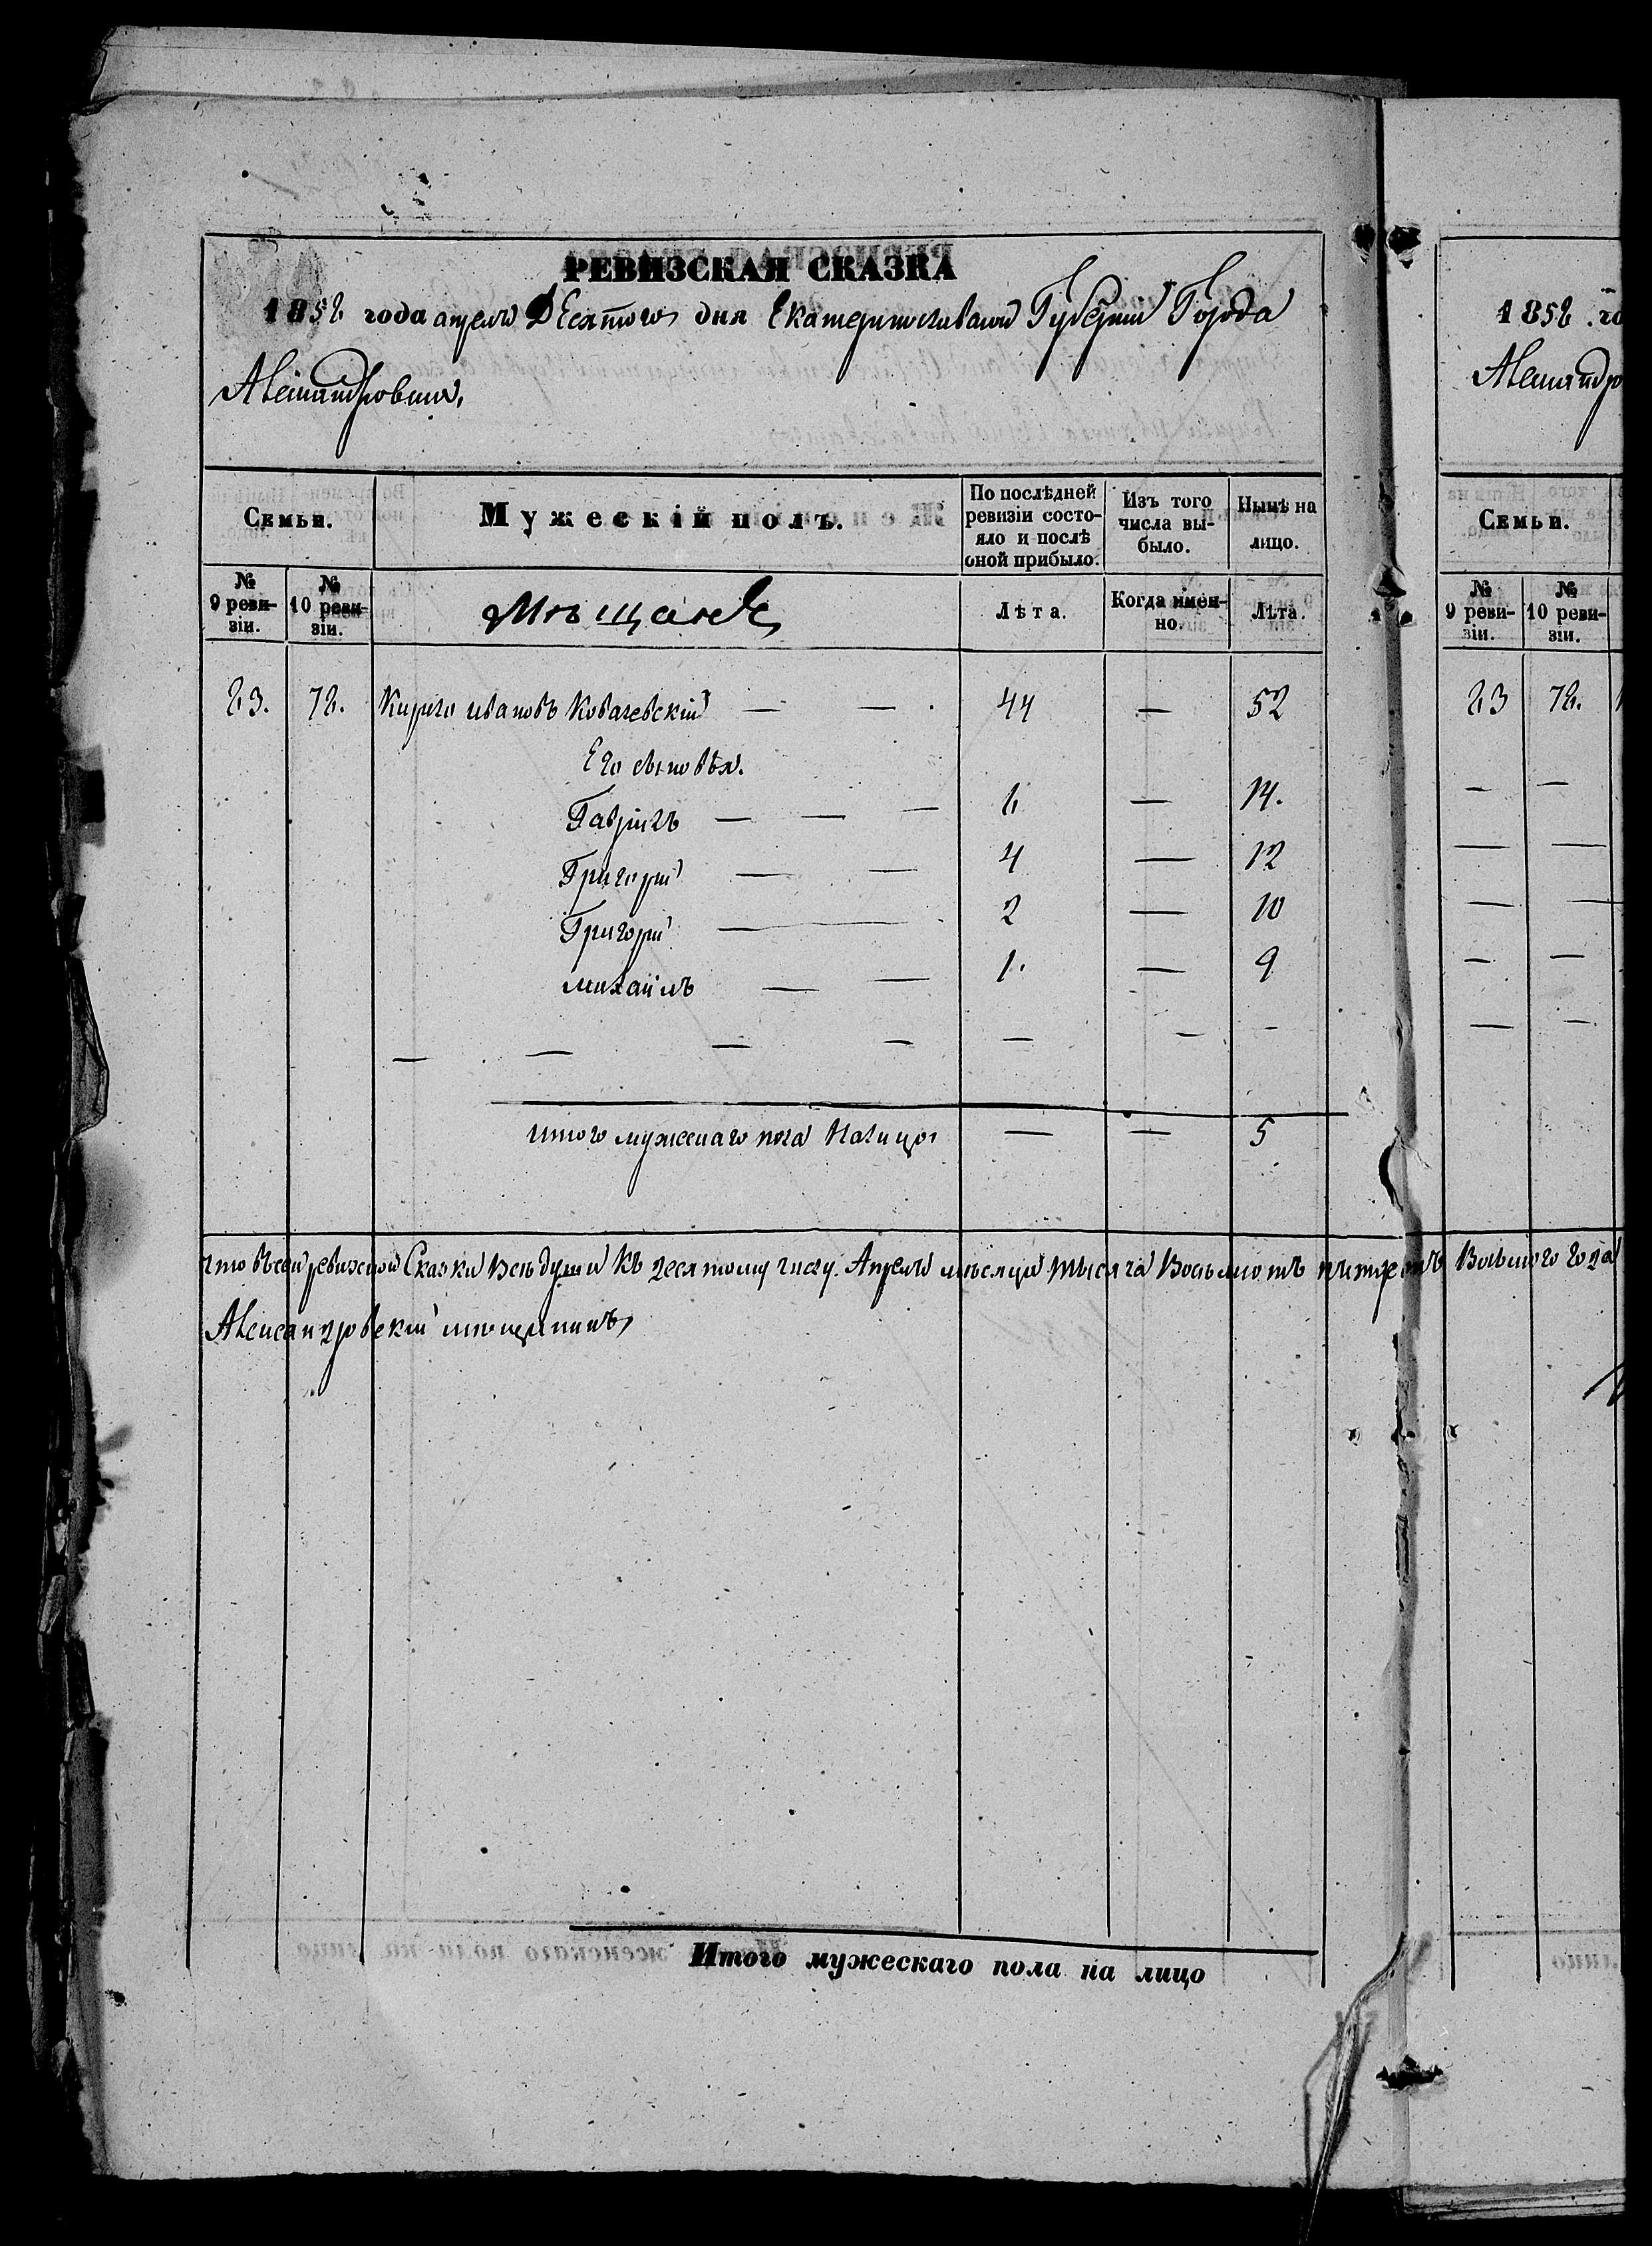 РЕВИЗСКАЯ СКАЗКА
1858 года апреля Десятого дня Екатеринославской Губернии Города
Александровска,
Семьи.
Мужескій полъ.
По послѣдней ревизіи состояло и послѣ оной прибыло.
Изъ того числа выбыло.
Нынѣ на лицо.
№ 9 ревизіи.
№ 10 ревизіи.
Мѣщане
Лѣта.
Когда именно.
Лѣта.
Кирило ивановъ Ковалевскій — — 44 — 52
Его сыновья.
Гаврилъ — — — 6 — 14.
Григорій — — 4 — 12
Григорій — — 2 — 10
михаилъ — — 1. — 9
— — — — — — —
итого мужескаго пола Налицо — — 5
что въ сей ревижской Сказки Всѣ души Къ десятому числу Апреля мѣсяца тысяча Восьмъсотъ пятдесятъ Восьмого года
Александровскій мещанинъ
Итого мужескаго пола на лицо
1858 го
Александро
Семьи.
№ 9 ревизіи.
№ 10 ревизіи.
— —
— —
— —
— —
— —